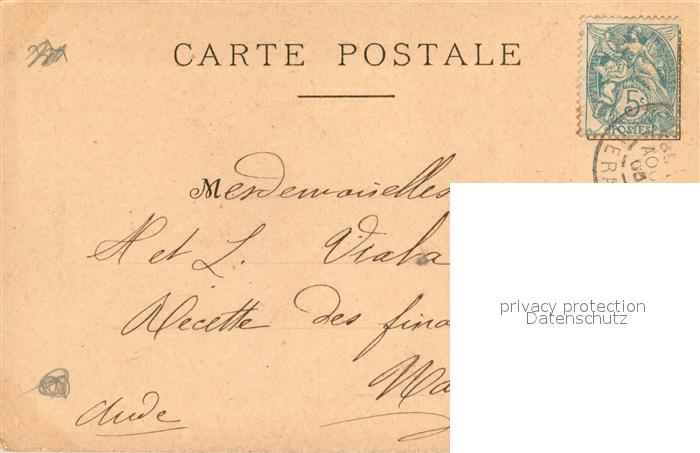 CARTE POSTALE
5c
POSTES
AOU
05
Mesdemoiselles
H et L. Viala
Recette des fina
Na
Aude
privacy protection
Datenschutz